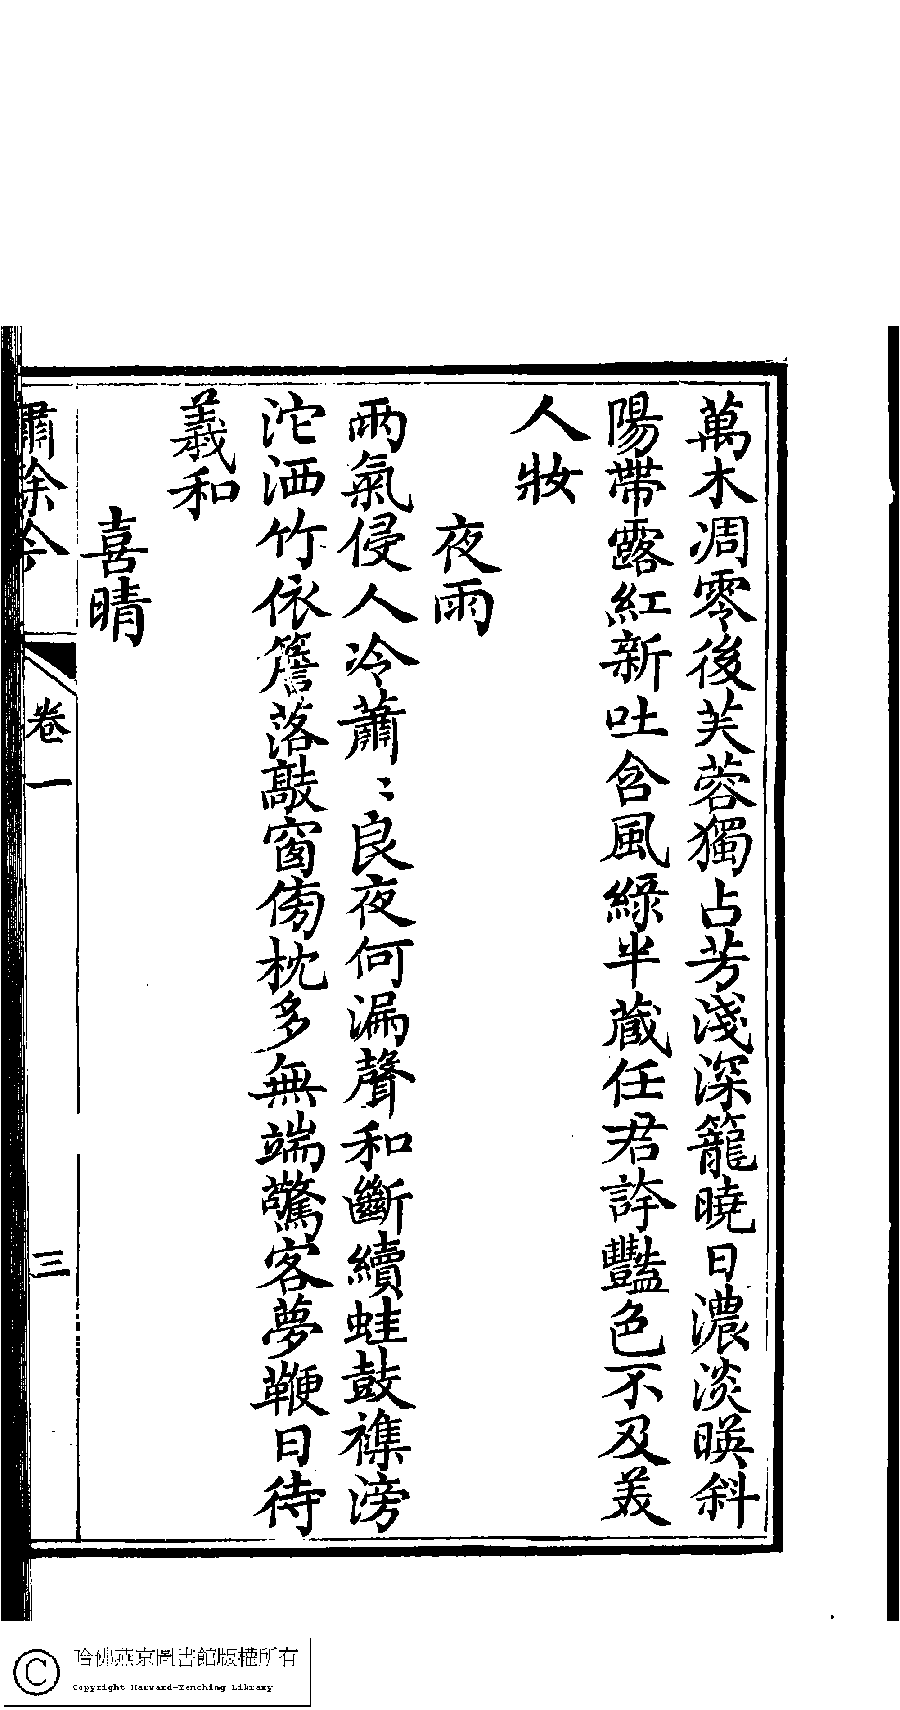 萬木凋零後芙蓉獨占芳淺深籠曉日濃淡暎斜
陽帶露紅新吐含風綠半藏任君誇豔色不及美
人妝
夜雨
雨氣侵人冷蕭〻良夜何漏聲和斷續蛙鼓襍滂
沱洒竹依簷落敲窗傍枕多無端驚客夢鞭日待
羲和
喜晴
繡餘吟
卷一
三
哈佛燕京圖書館版權所有
Copyright Harvard-Yenching Library